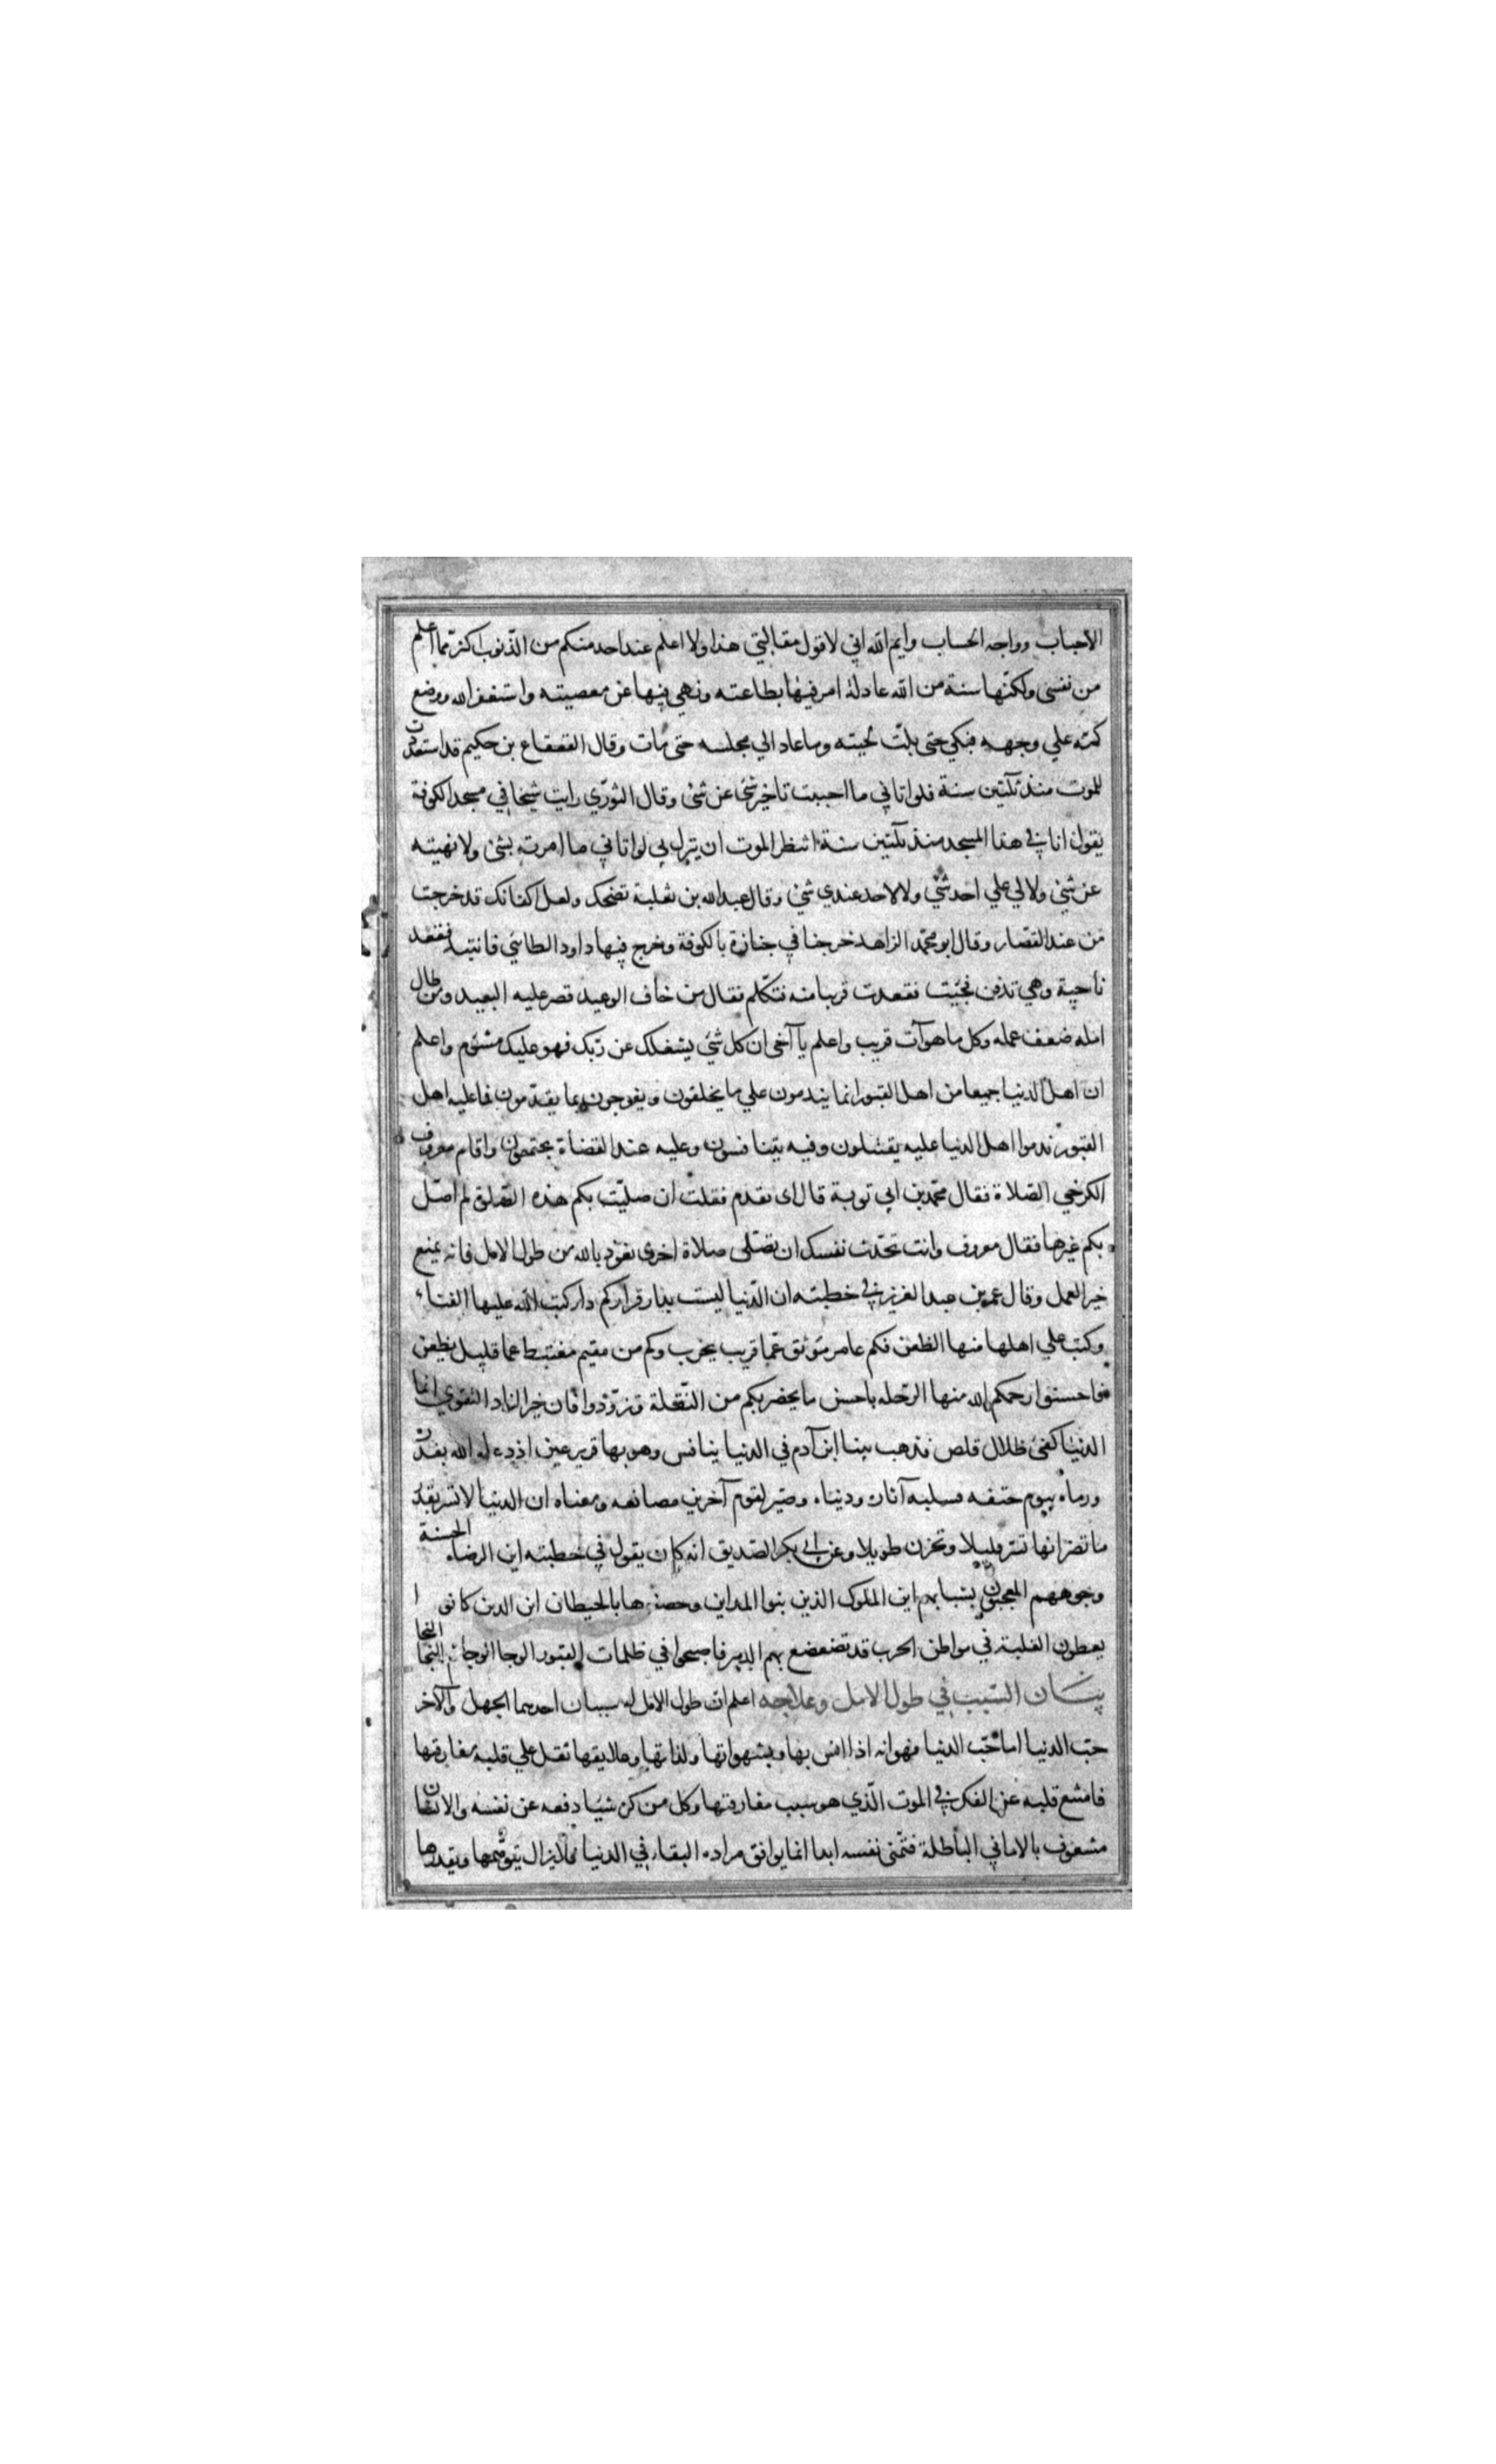 الاحباب وواجه الحساب وايم الله اني لاقول مقالتي هذا ولا اعلم عند احد منكم من الذنوب اكثر مما اعلم
من نفسي ولكنها سنة من الله عادلة امر فيها بطاعته ونهي فيها عن معصيته واستغفر الله ووضع
كمه علي وجهه فبكي حتى بلت لحيته وما عاد الي مجلسه حتى مات وقال القعقاع بن حكيم قد استعددت
للموت منذ ثلثين سنة فلو اتاني ما احببت تاخير شئ عن شئ وقال الثوري رايت شيخا في مسجد الكوفة
يقول انا في هذا المسجد منذ ثلثين سنة انتظر الموت ان ينزل بي لو اتاني ما امرته بشئ ولا نهيته
عن شئ ولا لي علي احد شئ ولا لاحد عندي شئ وقال عبد الله بن ثعلبة تضحك ولعل اكفانك قد خرجت
من عند القصار وقال ابو محمد الزاهد خرجنا في جنازة بالكوفة وخرج فيها داود الطائي فانتبذ فقعد
ناحية وهي تدفن فجئت فقعدت قريبا منه فتكلم فقال من خاف الوعيد قصر عليه البعيد ومن طال
امله ضعف عمله وكل ما هو آت قريب واعلم يا آخي ان كل شئ يشغلك عن ربك فهو عليك مشئوم واعلم
ان اهل الدنيا جميعا من اهل القبور انما يندمون علي ما يخلفون ويفرحون بما يقدمون فما عليه اهل
القبور ندموا اهل الدنيا عليه يقتتلون وفيه يتنافسون وعليه عند القضاة يختصمون واقام معروف
الكرخي الصلاة فقال محمد بن ابي توبة قال لى تقدم فقلت ان صليت بكم هذه الصلوة لم اصل
بكم غيرها فقال معروف وانت تحدث نفسك ان تصلى صلاة اخرى نعوذ بالله من طول الامل فانه يمنع
خير العمل وقال عمر بن عبد العزيز في خطبته ان الدنيا ليست بدار قراركم دار كتب الله عليها الفناء
وكتب علي اهلها منها الظعن فكم عامر موثق عما قريب يخرب وكم من مقيم مغتبط عما قليل يظعن
فاحسنوا رحمكم الله منها الرحله باحسن ما يحضربكم من النقلة وتزودوا فان خير الزاد التقوي انما
الدنيا كفئ ظلال قلص فذهب بينا ابن آدم في الدنيا ينافس وهو بها قرير عين اذ دعاه الله بقدره
ورماه بيوم حتفه فسلبه آثاره ودنياه وصير لقوم آخرين مصانعه ومغناه ان الدنيا لا تسر بقدر
ما تضر انها تسر قليلا وتحزن طويلا وعن ابي بكر الصديق انه كان يقول في خطبته اين الوضاء الحسنة
وجوههم المعجبون بشبابهم اين الملوك الذين بنوا المداين وحصنوها بالحيطان اين الذين كانوا
يعطون الغلبة في مواطن الحرب قد تضعضع بهم الدهر فاصبحوا في ظلمات القبور الوحا الوحا ثم النجا النجا
بيان السبب في طول الامل وعلاجه اعلم ان طول الامل له سببان احدهما الجهل والآخر
حب الدنيا اما حب الدنيا فهو انه اذا انس بها وبشهواتها ولذاتها وعلايقها ثقل علي قلبه مفارقتها
فامتنع قلبه عن الفكر في الموت الذي هو سبب مفارقتها وكل من كره شيئا دفعه عن نفسه والانسان
مشغوف بالاماني الباطلة فتمنى نفسه ابدا انما يوافق مراده البقاء في الدنيا فلا يزال يتوهمها ويقدرها